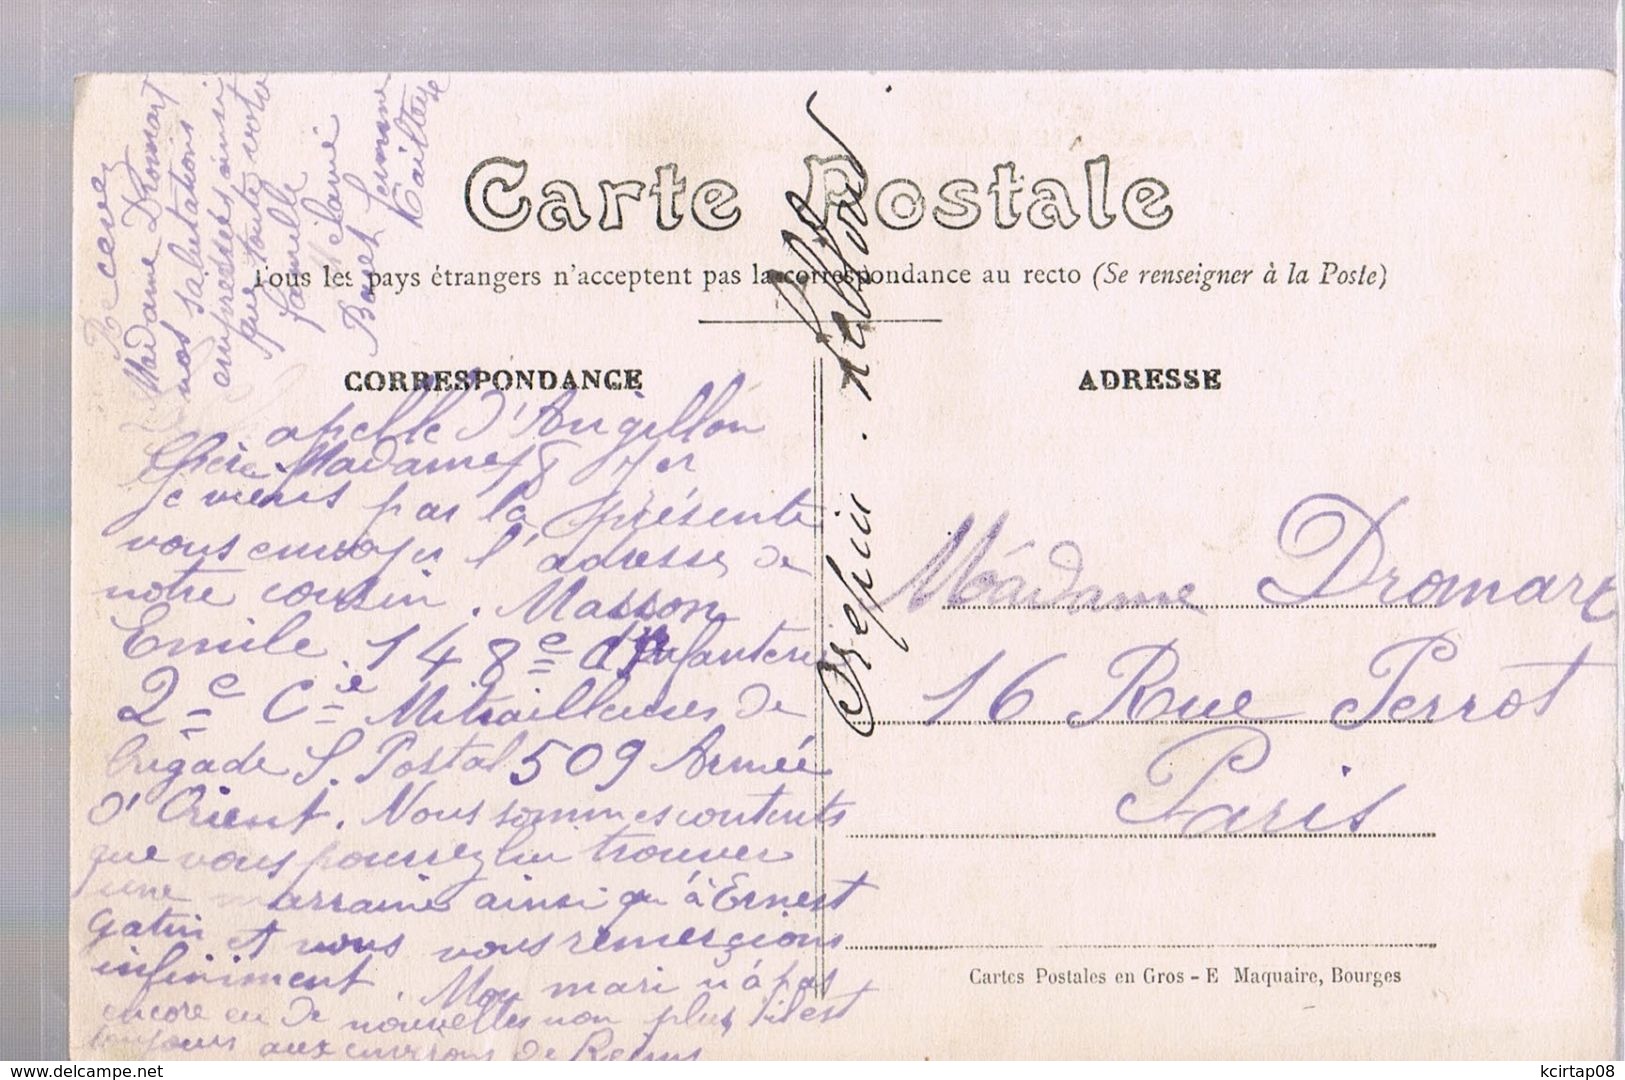 Carte Postale
Tous les pays étrangers n'acceptent pas la correspondance au recto (Se renseigner à la Poste)
CORRESPONDANCE
ADRESSE
apelle d'Angillon
Chère Madame 18
je viens par la présente
vous envoyer l'adresse de
notre cousin. Masson
Emile. 148e d'Infanterie
2e Cie Mitrailleuses de
brigade S. Postal 509 Armée
d'Orient. Nous sommes contents
que vous pourrez lui trouver
une marraine ainsi qu'à Ernest
Gatin et nous vous remerçions
infiniment. Mon mari n'a pas
encore eu de nouvelles non plus, il est
toujours aux environs de Reims
Recevez
Madame Dromart
nos salutations
empressées ainsi
que toute votre
famille
Bonet femme
Madame Dromart
16 Rue Perrot
Paris
Cartes Postales en Gros - E Maquaire, Bourges
kcirtap08